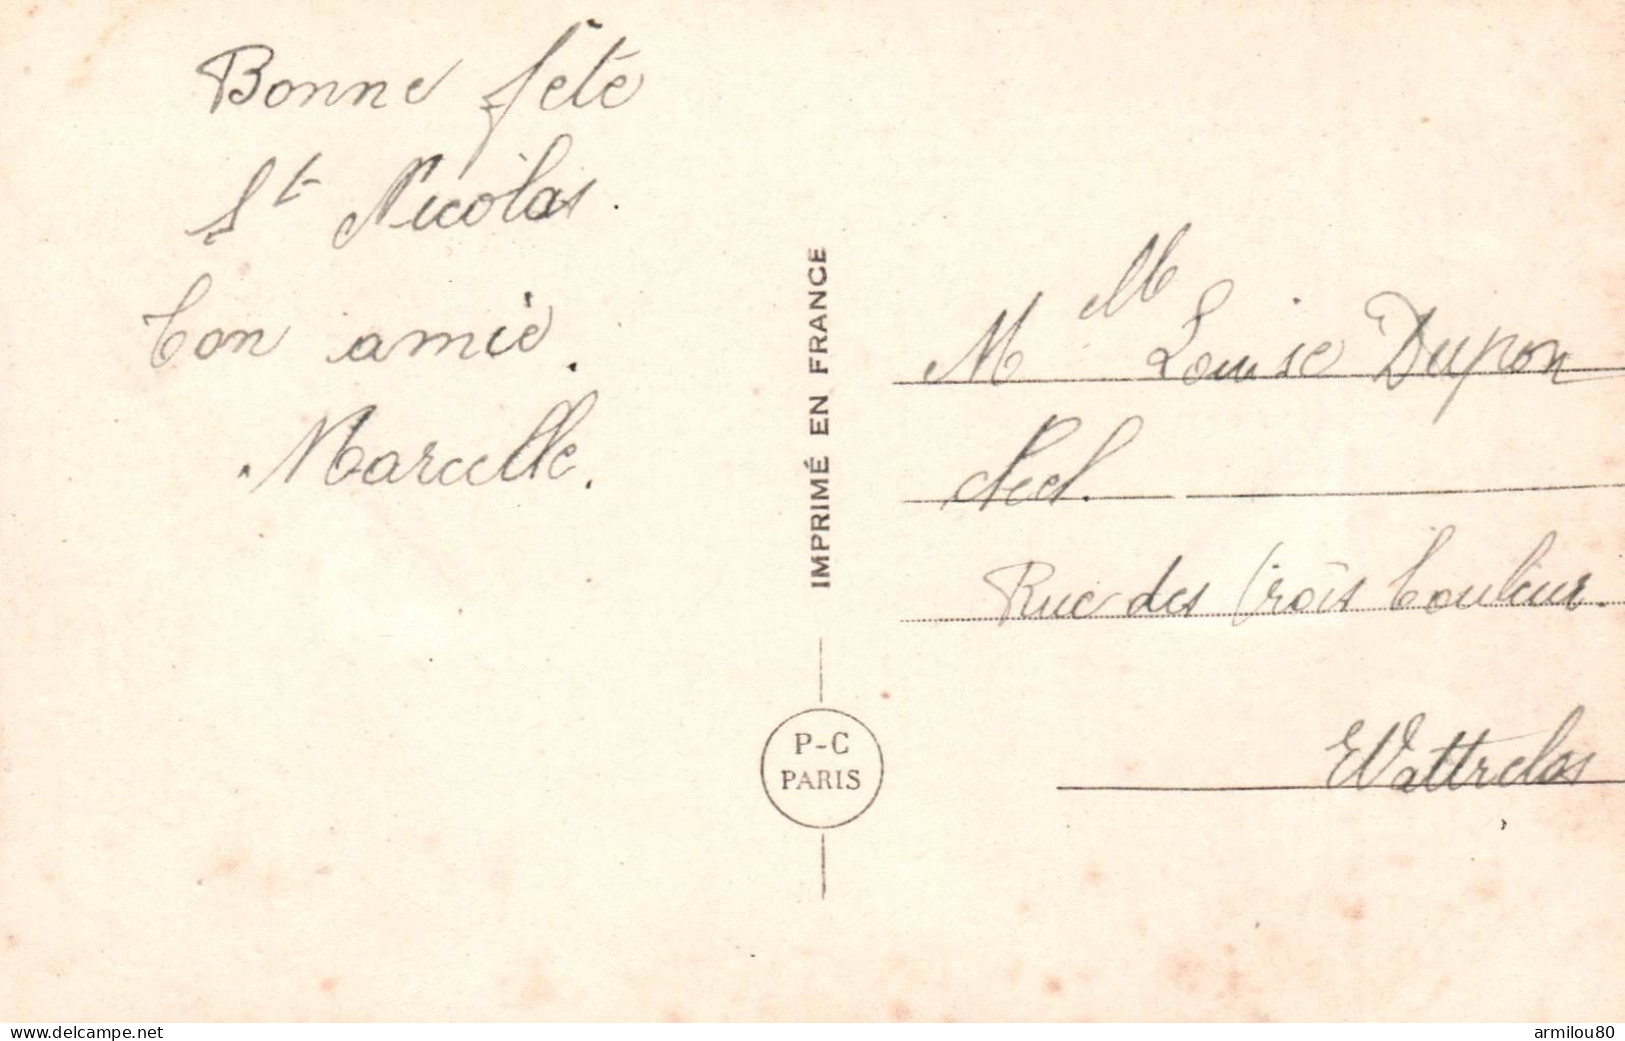 Bonne fête
St Nicolas.
Ton amie.
Marcelle.
IMPRIMÉ EN FRANCE
P-C
PARIS
Mlle Louise Dupon
Rue des Trois Couleur.
Wattrelos
delcampe.net
armilou80